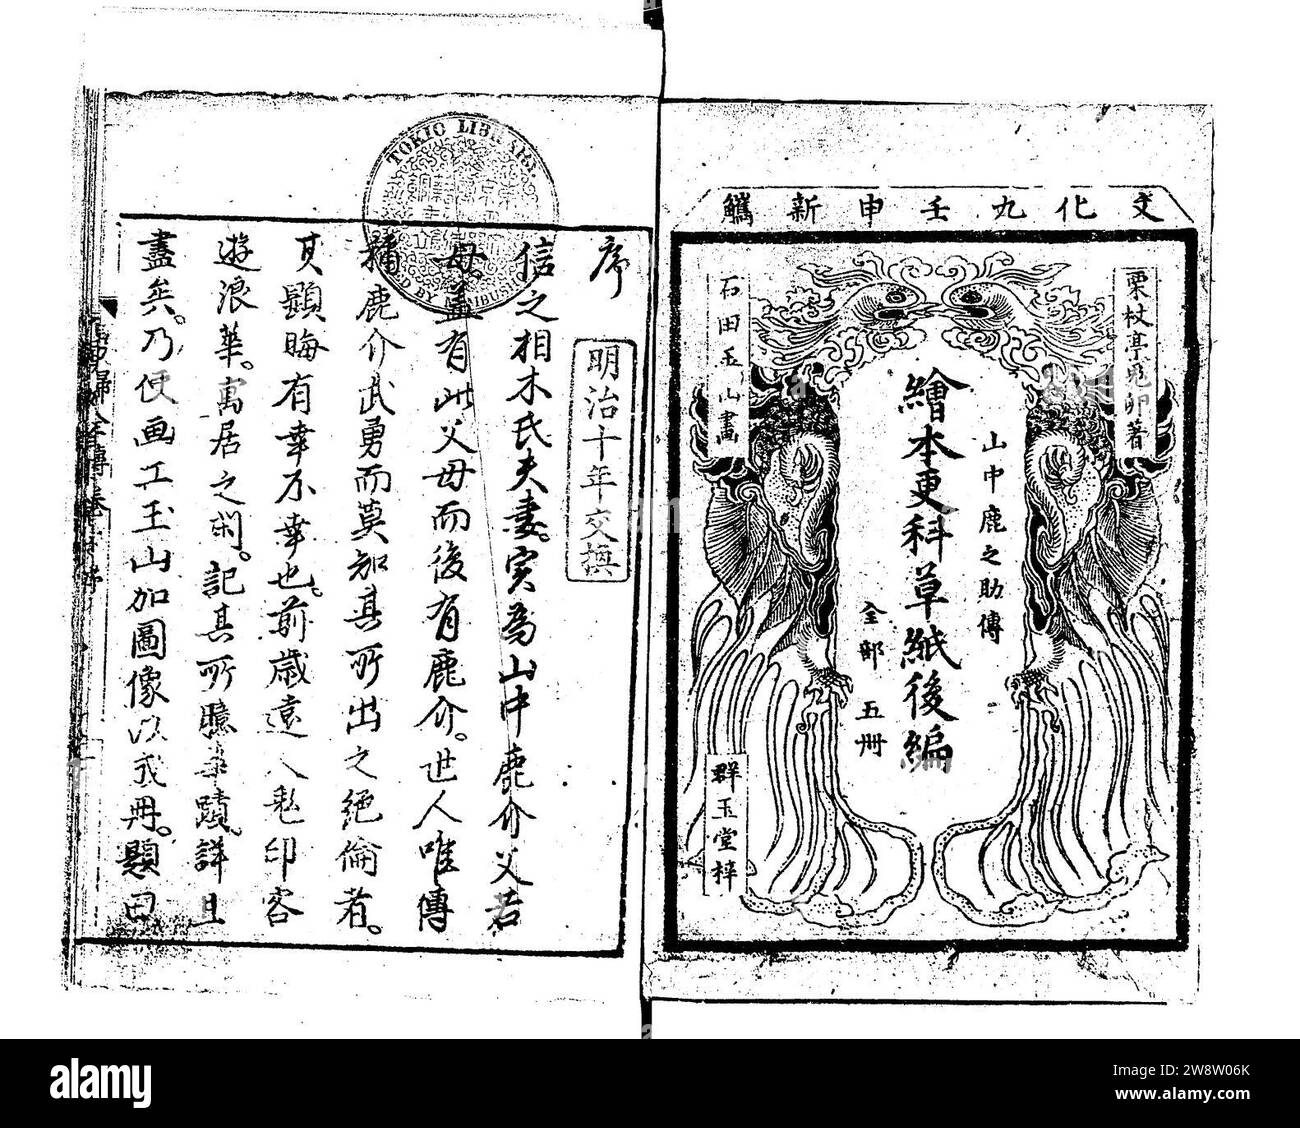 文化九壬申新鐫
栗杖亭鬼卵著
山中鹿之助傳
繪本更科草紙後編
全部五冊
石田玉山畫
群玉堂梓
序
明治十年交換
TOKIO LIBRARY.
信之相木氏夫妻。実為山中鹿介父若
母。蓋有此父母而後有鹿介。世人唯傳
稱鹿介武勇而莫知其所出之絕倫者。
其顕晦有幸不幸也。前歳遠人鬼卵客
遊浪華。寓居之閑。記其所聴事蹟。詳且
盡矣。乃使画工玉山加圖像以成冊。題曰
alamy
Image ID: 2W8W06K
www.alamy.com